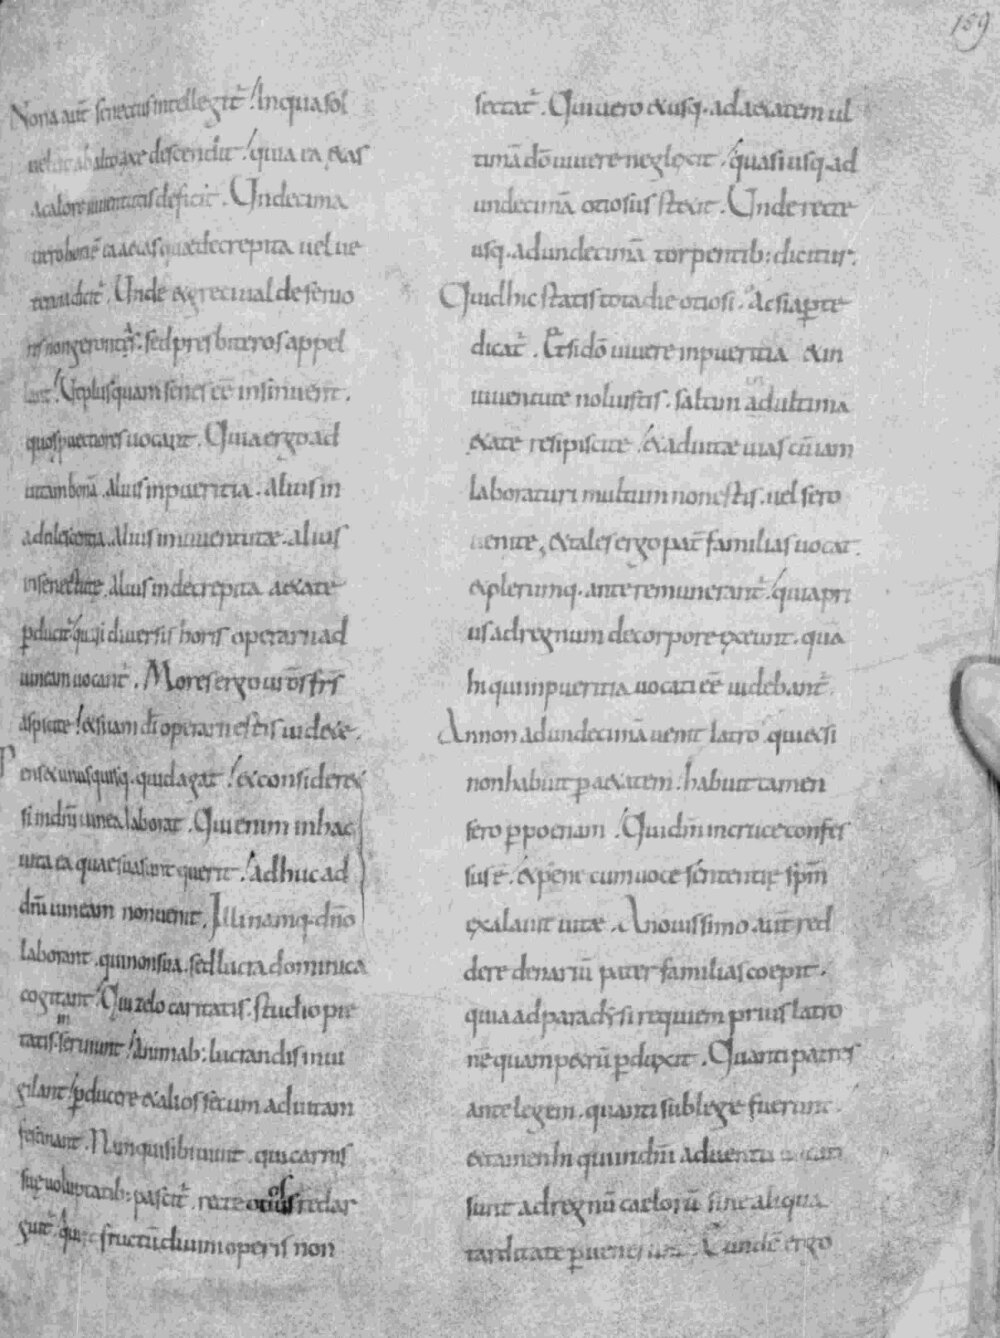 159
Nona aut̄ senectus intellegit᷑. In qua sol
uelut ab alto axe descendit. quia ea etas
a calore iuuentutis deficit. Undecima
uero hora ē ea aetas quae decrepita uel ue
terana dicit᷑. Unde & greci ualde senio
res non gerontas. sed presbiteros appel
lant. Ut plus quam senes eē insinuent.
quos prouectiores uocant. Quia ergo ad
uitam bonā. alius in pueritia. alius in
adulescentia. alius in iuuentute. alius
in senectute. alius in decrepita aetate
ꝑducit᷑. quasi diuersis horis operarii ad
uineam uocant᷑. Mores ergo ur̄os fr̄s
aspicite. & si iam dī operarii estis uidete.
Penset unusquisq. quid agat. & consideret
si in dn̄i uinea laborat. Qui enim in hac
uita ea quae sua sunt querit. adhuc ad
dn̄i uineam non uenit. Illi namq. dn̄o
laborant. qui non sua. sed lucra dominica
cogitant. Qui zelo caritatis. studio pie
tatis inseruiunt. Animab; lucrandis inui
gilant. ꝑducere & alios secum ad uitam
festinant. Nam qui sibi uiuit. qui carnis
suę uoluptatib; pascit᷑. recte otiosus redar
guit᷑. quia fructū diuini operis non
sectat᷑. Qui uero & usq. ad aetatem ul
timā dō uiuere neglexit. quasi usq. ad
undecimā otiosus stetit. Unde recte
usq. ad undecimā torpentib; dicitur.
Quid hic statis tota die otiosi. Ac si aꝑte
dicat᷑. Et si dō uiuere in pueritia & in
iuuentute noluistis. saltim in ultima
etate resipiscite. & ad uitae uias cū iam
laboraturi multum non estis. uel sero
uenite. & tales ergo pat̄ familias uocat.
& plerumq. ante remunerant᷑. quia pri
us ad regnum de corpore exeunt. quā
hi qui in pueritia uocati eē uidebant᷑.
An non ad undecimā uenit latro. qui etsi
non habuit ꝑ aetatem. habuit tamen
sero ꝑ poenam. Qui dm̄ in cruce confes
sus ē. & pene cum uoce sententię sp̄m
exalauit uitae. A nouissimo aut̄ red
dere denariū pater familias coepit.
quia ad paradysi requiem prius latro
nē quam petrū ꝑduxit. Quanti patres
ante legem. quanti sub lege fuerunt.
& tamen hi qui in dn̄i aduentu uocati
sunt ad regnū caelorū sine aliqua
tarditate ꝑuenerunt. Eundē ergo